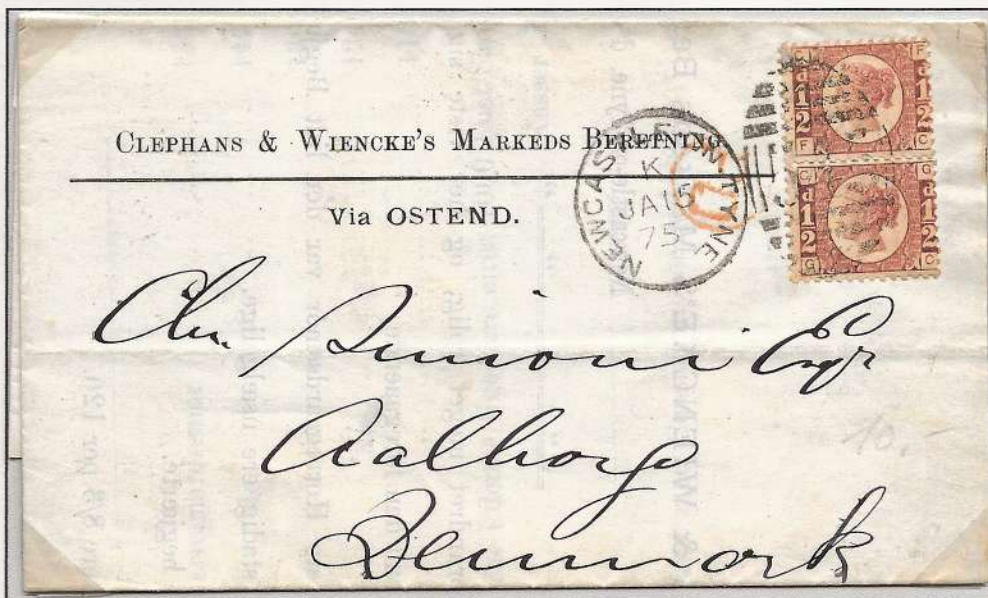 CLEPHANS & WIENCKE'S MARKEDS BERETNING.
Via OSTEND.
NEWCASTLE ON TYNE
K
JA15
75
C F
d 1/2 d 1/2
F C
C G
d 1/2 d 1/2
G C
Chr. Simioni Esqr
Aalborg
Denmark
10.